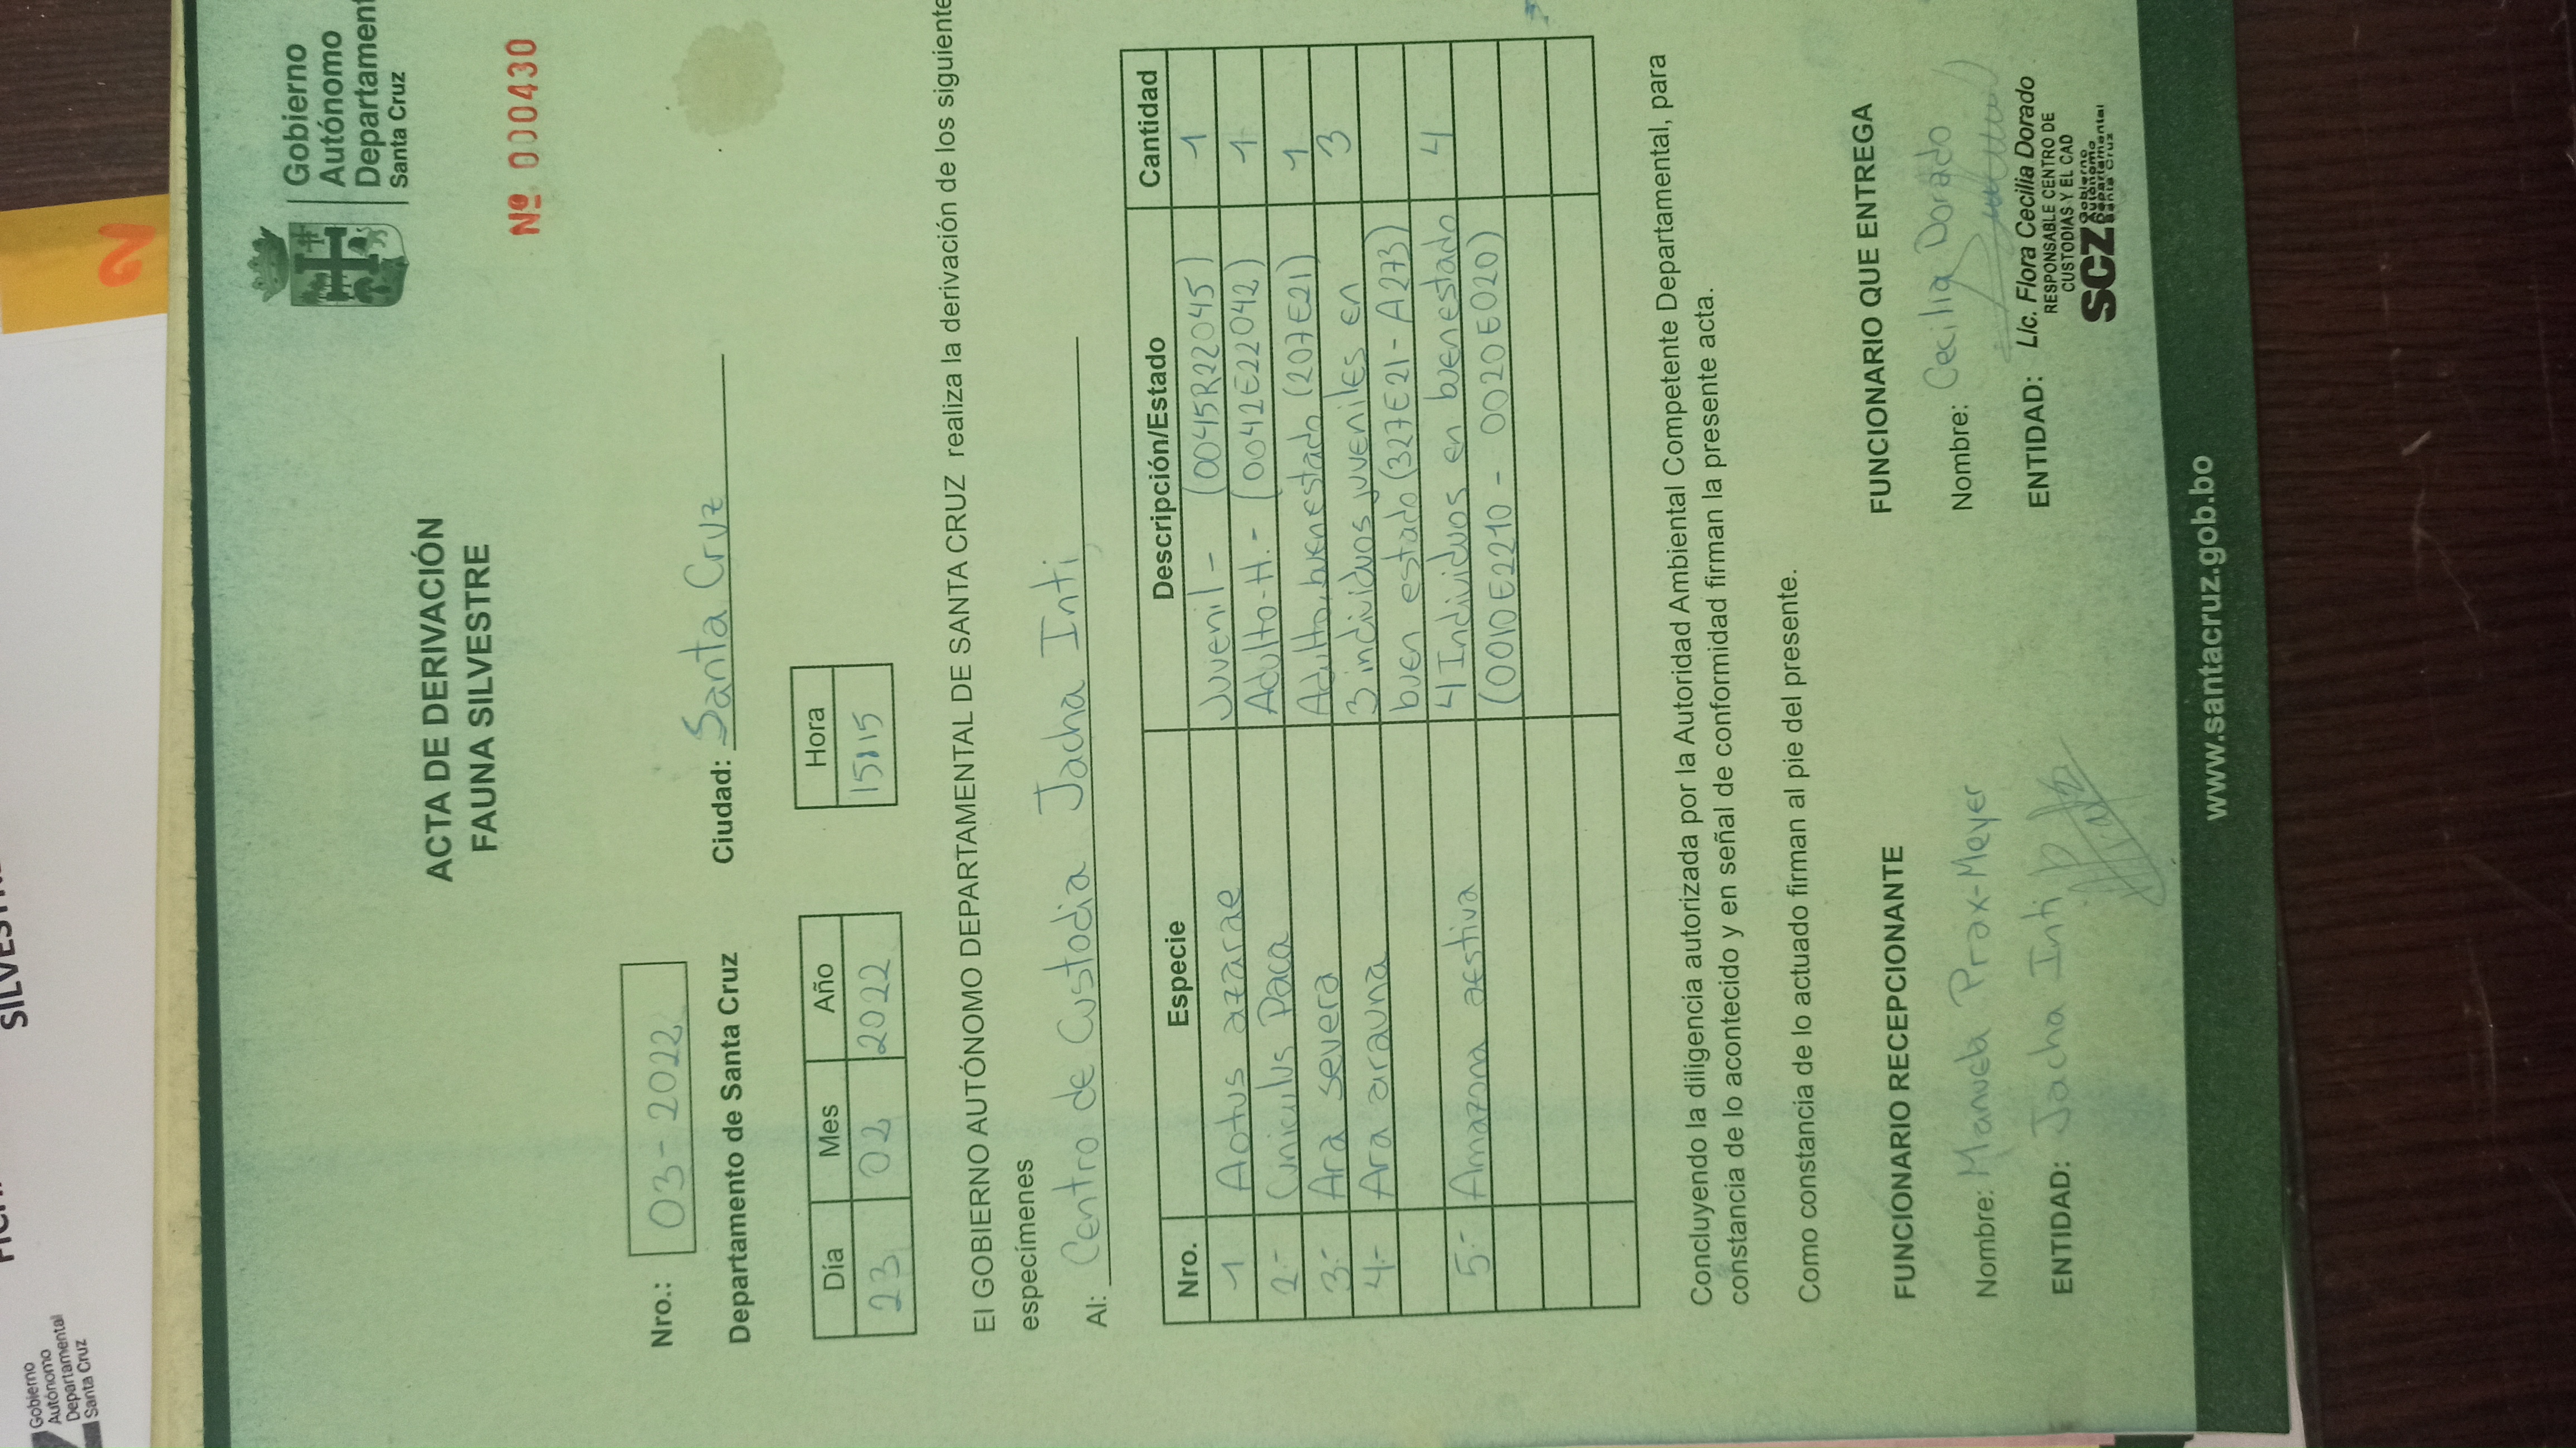 Gobierno
Autónomo
Departamental
Santa Cruz
Gobierno
Autónomo
Departament
Santa Cruz
ACTA DE DERIVACIÓN
FAUNA SILVESTRE
Nº 000430
Nro.: 03-2022
Departamento de Santa Cruz Ciudad: Santa Cruz
Día Mes Año Hora
23 02 2022 15:15
El GOBIERNO AUTÓNOMO DEPARTAMENTAL DE SANTA CRUZ realiza la derivación de los siguiente
especímenes
Al: Centro de Custodia Jacha Inti
Nro. Especie Descripción/Estado Cantidad
1 Aotus azarae Juvenil - (0045R22045) 1
2.- Cuniculus Paca Adulto-H.- (0042E22042) 1
3.- Ara severa Adulto, buen estado (207E21) 1
4.- Ara arauna 3 individuos juveniles en 3
buen estado (327E21 - A273)
5.- Amazona aestiva 4 Individuos en buen estado 4
(0010E2210 - 0020E020)
Concluyendo la diligencia autorizada por la Autoridad Ambiental Competente Departamental, para
constancia de lo acontecido y en señal de conformidad firman la presente acta.
Como constancia de lo actuado firman al pie del presente.
FUNCIONARIO RECEPCIONANTE FUNCIONARIO QUE ENTREGA
Nombre: Manuela Prax-Meyer Nombre: Cecilia Dorado
ENTIDAD: Jacha Inti ENTIDAD: Lic. Flora Cecilia Dorado
RESPONSABLE CENTRO DE
CUSTODIAS Y EL CAD
SCZ Gobierno
Autónomo
Departamental
Santa Cruz
www.santacruz.gob.bo